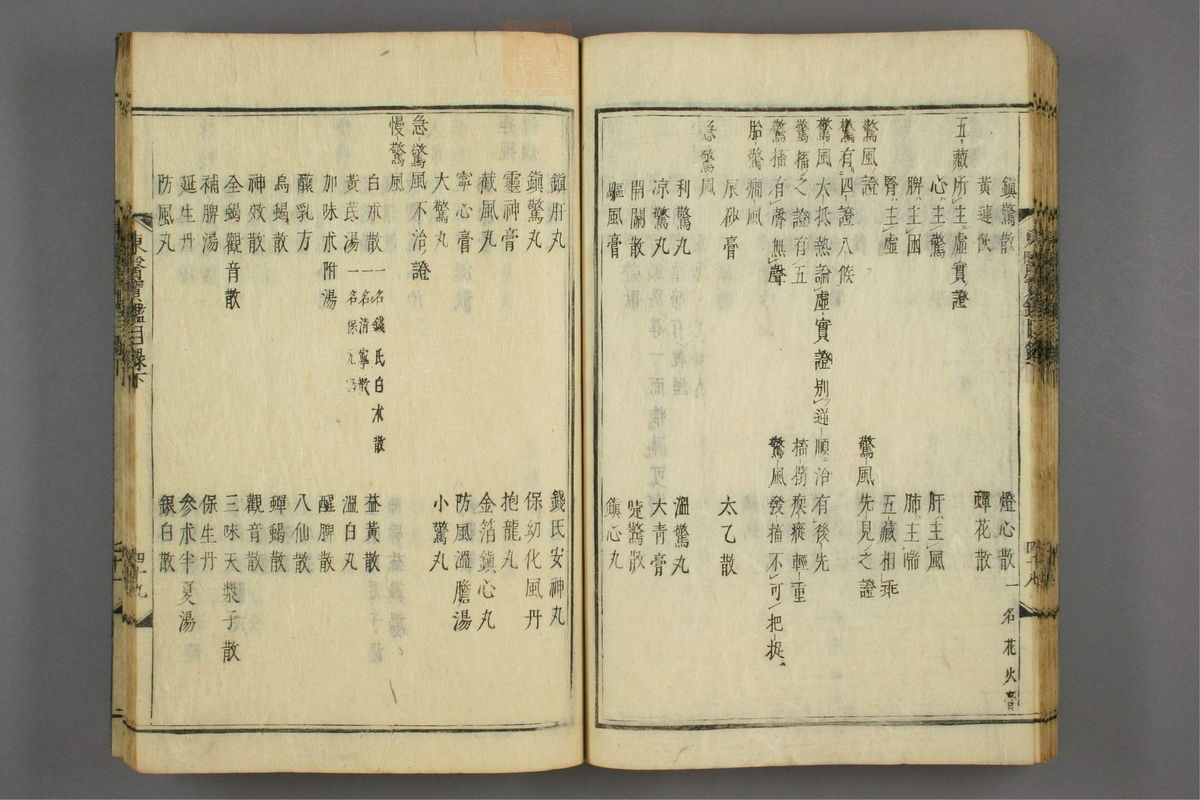 鎮驚散 燈心散一名花火膏
黃連飮 蟬花散
五藏所主虛實證
心主驚 肝主風
脾主困 肺主喘
腎主虛 五藏相乖
驚風證 驚風先見之證
驚有四證八候
驚風大抵熱論虛實證別逆順治有後先
驚搐之證有五 搐搦瘈瘲輕重
驚搐有聲無聲 驚風發搐不可把捉
胎驚癎風
辰砂膏 太乙散
急驚風
利驚丸 溫驚丸
凉驚丸 大青膏
開關散 嚔驚散
驅風膏 鎮心丸
鎮肝丸 錢氏安神丸
鎮驚丸 保幼化風丹
靈神膏 抱龍丸
截風丸 金箔鎮心丸
寧心膏 防風溫膽湯
大驚丸 小驚丸
急驚風不治證
慢驚風
白朮散一名錢氏白朮散 益黃散
黃芪湯一名保元湯 溫白丸
加味朮附湯 醒脾散
釀乳方 八仙散
烏蝎散 蟬蝎散
神效散 觀音散
全蝎觀音散 三味天漿子散
補脾湯 保生丹
延生丹 參朮半夏湯
防風丸 銀白散
東醫寶鑑目錄下
四十九